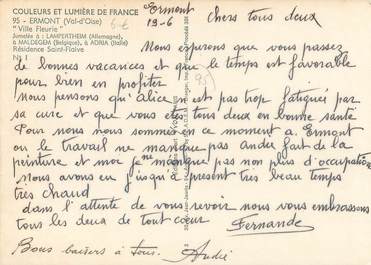 COULEURS ET LUMIÈRE DE FRANCE
95 - ERMONT (Val-d'Oise)
"Ville Fleurie"
Jumelée à : LAMPERTHEIM (Allemagne),
à MALDEGEM (Belgique), à ADRIA (Italie)
Résidence Saint-Flaive
N° 1
5 €
95
Ermont
13-6
Chers tous deux
Nous esperons que vous passez
de bonnes vacances et que le temps est favorable
pour bien en profiter
nous pensons qu'alice n'est pas trop fatiguée par
sa cure et que vous êtes tous deux en bonne santé
Pour nous nous sommes en ce moment a Ermont
ou le travail ne manque pas andré fait de la
peinture et moi je ne manque pas non plus d'occupation
nous avons eu jusqu'à present très beau temps
très chaud
dans l'attente de vous revoir nous vous embrassons
tous les deux de tout cœur
Fernande
Bons baisers à tous. André